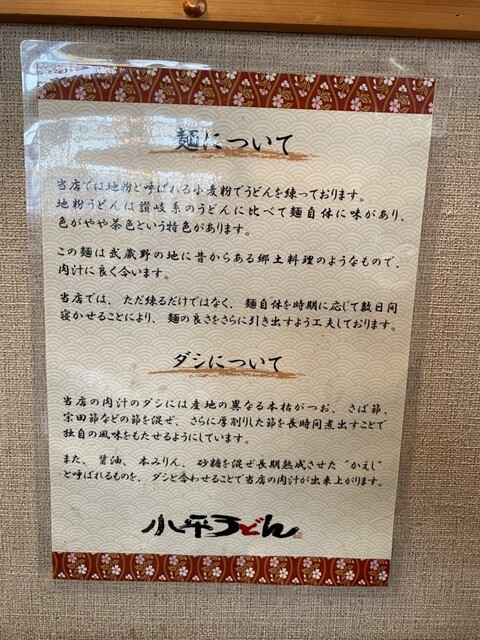 麺について
当店では地粉と呼ばれる小麦粉でうどんを練っております。
地粉うどんは讃岐系のうどんに比べて麺自体に味があり、
色がやや茶色という特色があります。
この麺は武蔵野の地に昔からある郷土料理のようなもので、
肉汁に良く合います。
当店では、ただ練るだけではなく、麺自体を時期に応じて数日間
寝かせることにより、麺の良さをさらに引き出すよう工夫しております。
ダシについて
当店の肉汁のダシには産地の異なる本枯がつお、さば節、
宗田節などの節を混ぜ、さらに厚削りした節を長時間煮出すことで
独自の風味をもたせるようにしています。
また、醤油、本みりん、砂糖を混ぜ長期熟成させた“かえし”
と呼ばれるものを、ダシと合わせることで当店の肉汁が出来上がります。
小平うどん